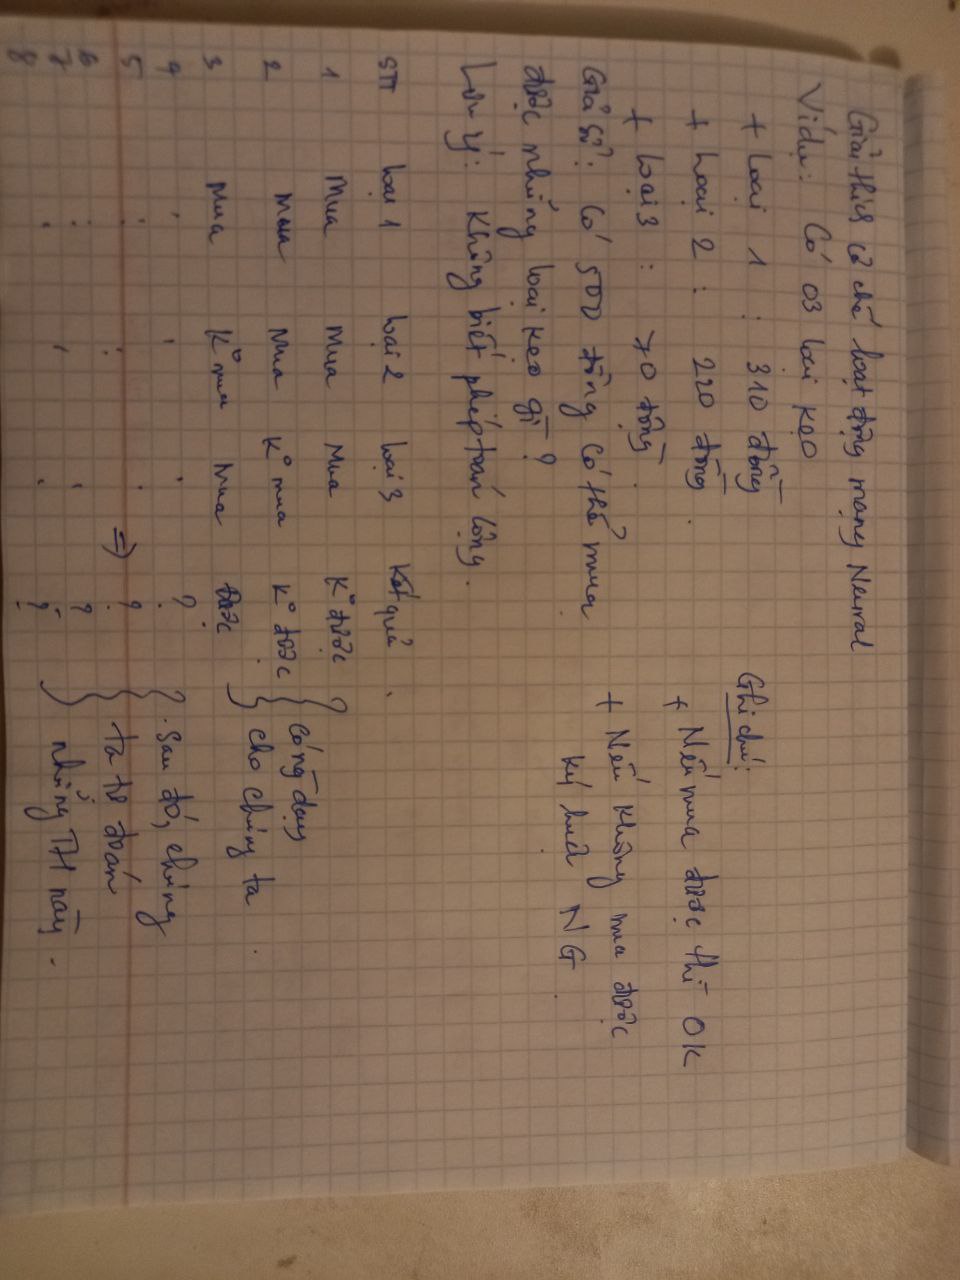 Giải thích cơ chế hoạt động mạng Neural
Ví dụ: Có 03 loại kẹo
+ Loại 1 : 310 đồng
+ Loại 2 : 220 đồng.
+ Loại 3 : 70 đồng.
Giả sử: Có 500 đồng có thể mua
được những loại kẹo gì?
Lưu ý: Không biết phép toán cộng.
Ghi chú:
+ Nếu mua được thì OK
+ Nếu không mua được
ký hiệu NG.
STT Loại 1 Loại 2 Loại 3 Kết quả.
1 Mua Mua Mua K° được
2 Mua Mua K° mua K° được
3 Mua K° mua Mua Được
} dạy
cho chúng ta.
4 . . . ?
5 : : : => ?
6 : . . ?
7 : . . ?
8 . . . ?
} Sau đó, chúng
ta tự đoán
những TH này.